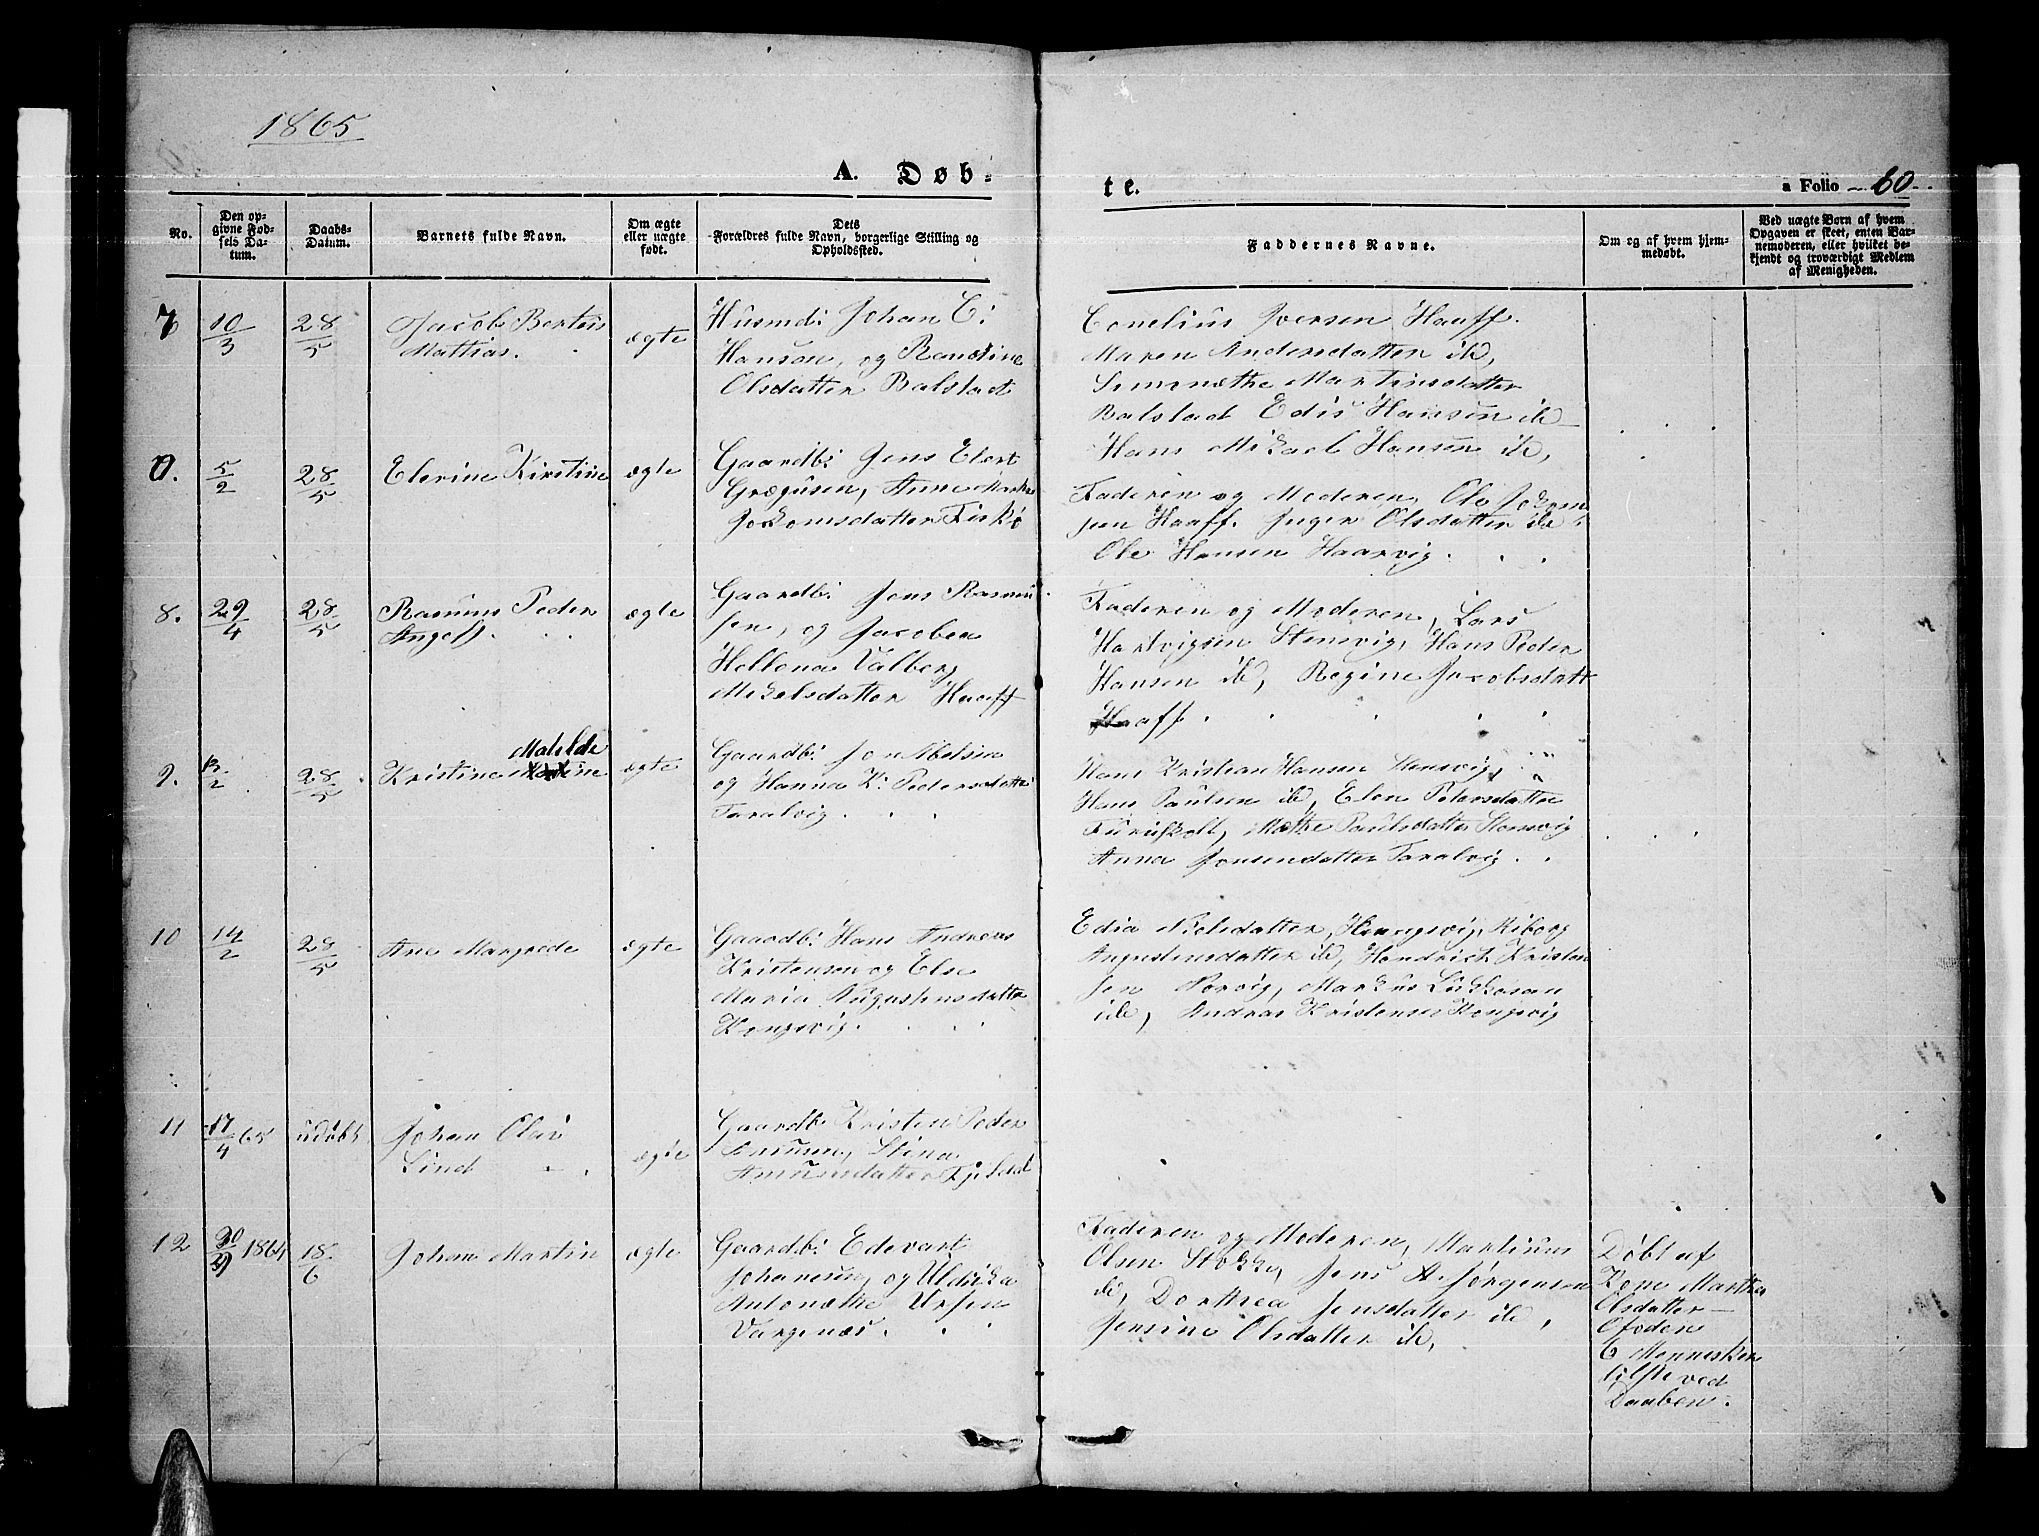 1865
A. Døb-
te.
a Folio 60
No.
Den op-
givne Fød-
sels Da-
tum.
Daabs-
Datum.
Barnets fulde Navn.
Om ægte
eller uægte
født.
Dets
Forældres fulde Navn, borgerlige Stilling og
Opholdssted.
Faddernes Navne.
Om og af hvem hjem-
medøbt.
Ved uægte Born af hvem
Opgaven er skeet, enten Bar-
nemoderen, eller hvilket be-
kjendt og troværdigt Medlem
af Menigheden.
7 10/3 28/5 Jacob
Mattias.
ægte
Husmd: Johan C:
Hansen, og
Olsdatter Balstad
Conelius Iversen Haaff.
Maren Andersdatter ib,
Martinsdatter
Balstad Edis Hansen ib
Hans Mikael Hansen ib,
5/2 28/5 Elerine Kirstine ægte
Gaardb: Jens Elert
Grægusen, Anne
Jokomsdatter
Faderen og Moderen, Ole
Haaff. Inger Olsdatter ib
Ole Hansen Haarvig.
8. 29/4 28/5 Rasmus Peder
Angell.
ægte
Gaardb: Jens Rasmu
sen, og Jacobea
Hellena Valberg
Mikelsdatter Haaff
Faderen og Moderen, Lars
Hartvigsen Stensvig, Hans Peder
Hansen ib, Regine Jacobsdatt
Haaff.
9. 28/5 Matilde
Kristine
ægte
Gaardb: Jon Abelsen
og Hanna K: Pedersdatter
Taralvig.
Hans Kristian Hansen Stensvig,
Hans Paulsen ib, Elen Petersdatter
Mætte Paulsdatter Stensvig
Anna Jonsendatter Taralvig.
10 14/2 28/5 Ane Margrede ægte
Gaardb: Hans Andreas
Kristensen og Else
Maria Augustinusdatter
Kongsvig.
Edia Nielsdatter, Kongsvig,
Augustensdatter ib, Hendrich Kristen
sen Markus
ib, Andreas Kristensen Kongsvig
11 17/4 65 udøbt Johan Olai
Lind
ægte
Gaardb: Kristen Peder
Stina
12 1864 18/6 Johan Martin ægte
Gaardb: Edevart
Johanesen, og Uldrika
Antonætthe
Vargenæs.
Faderen og Moderen,
Olsen Stokke, Jens A. Jørgensen
ib, Dorthea Jensdatter ib,
Jensine Olsdatter ib,
Døbt af
Kone Marthea
Olsdatter
Ofoden
6 Mennesker
ved
Daaben.